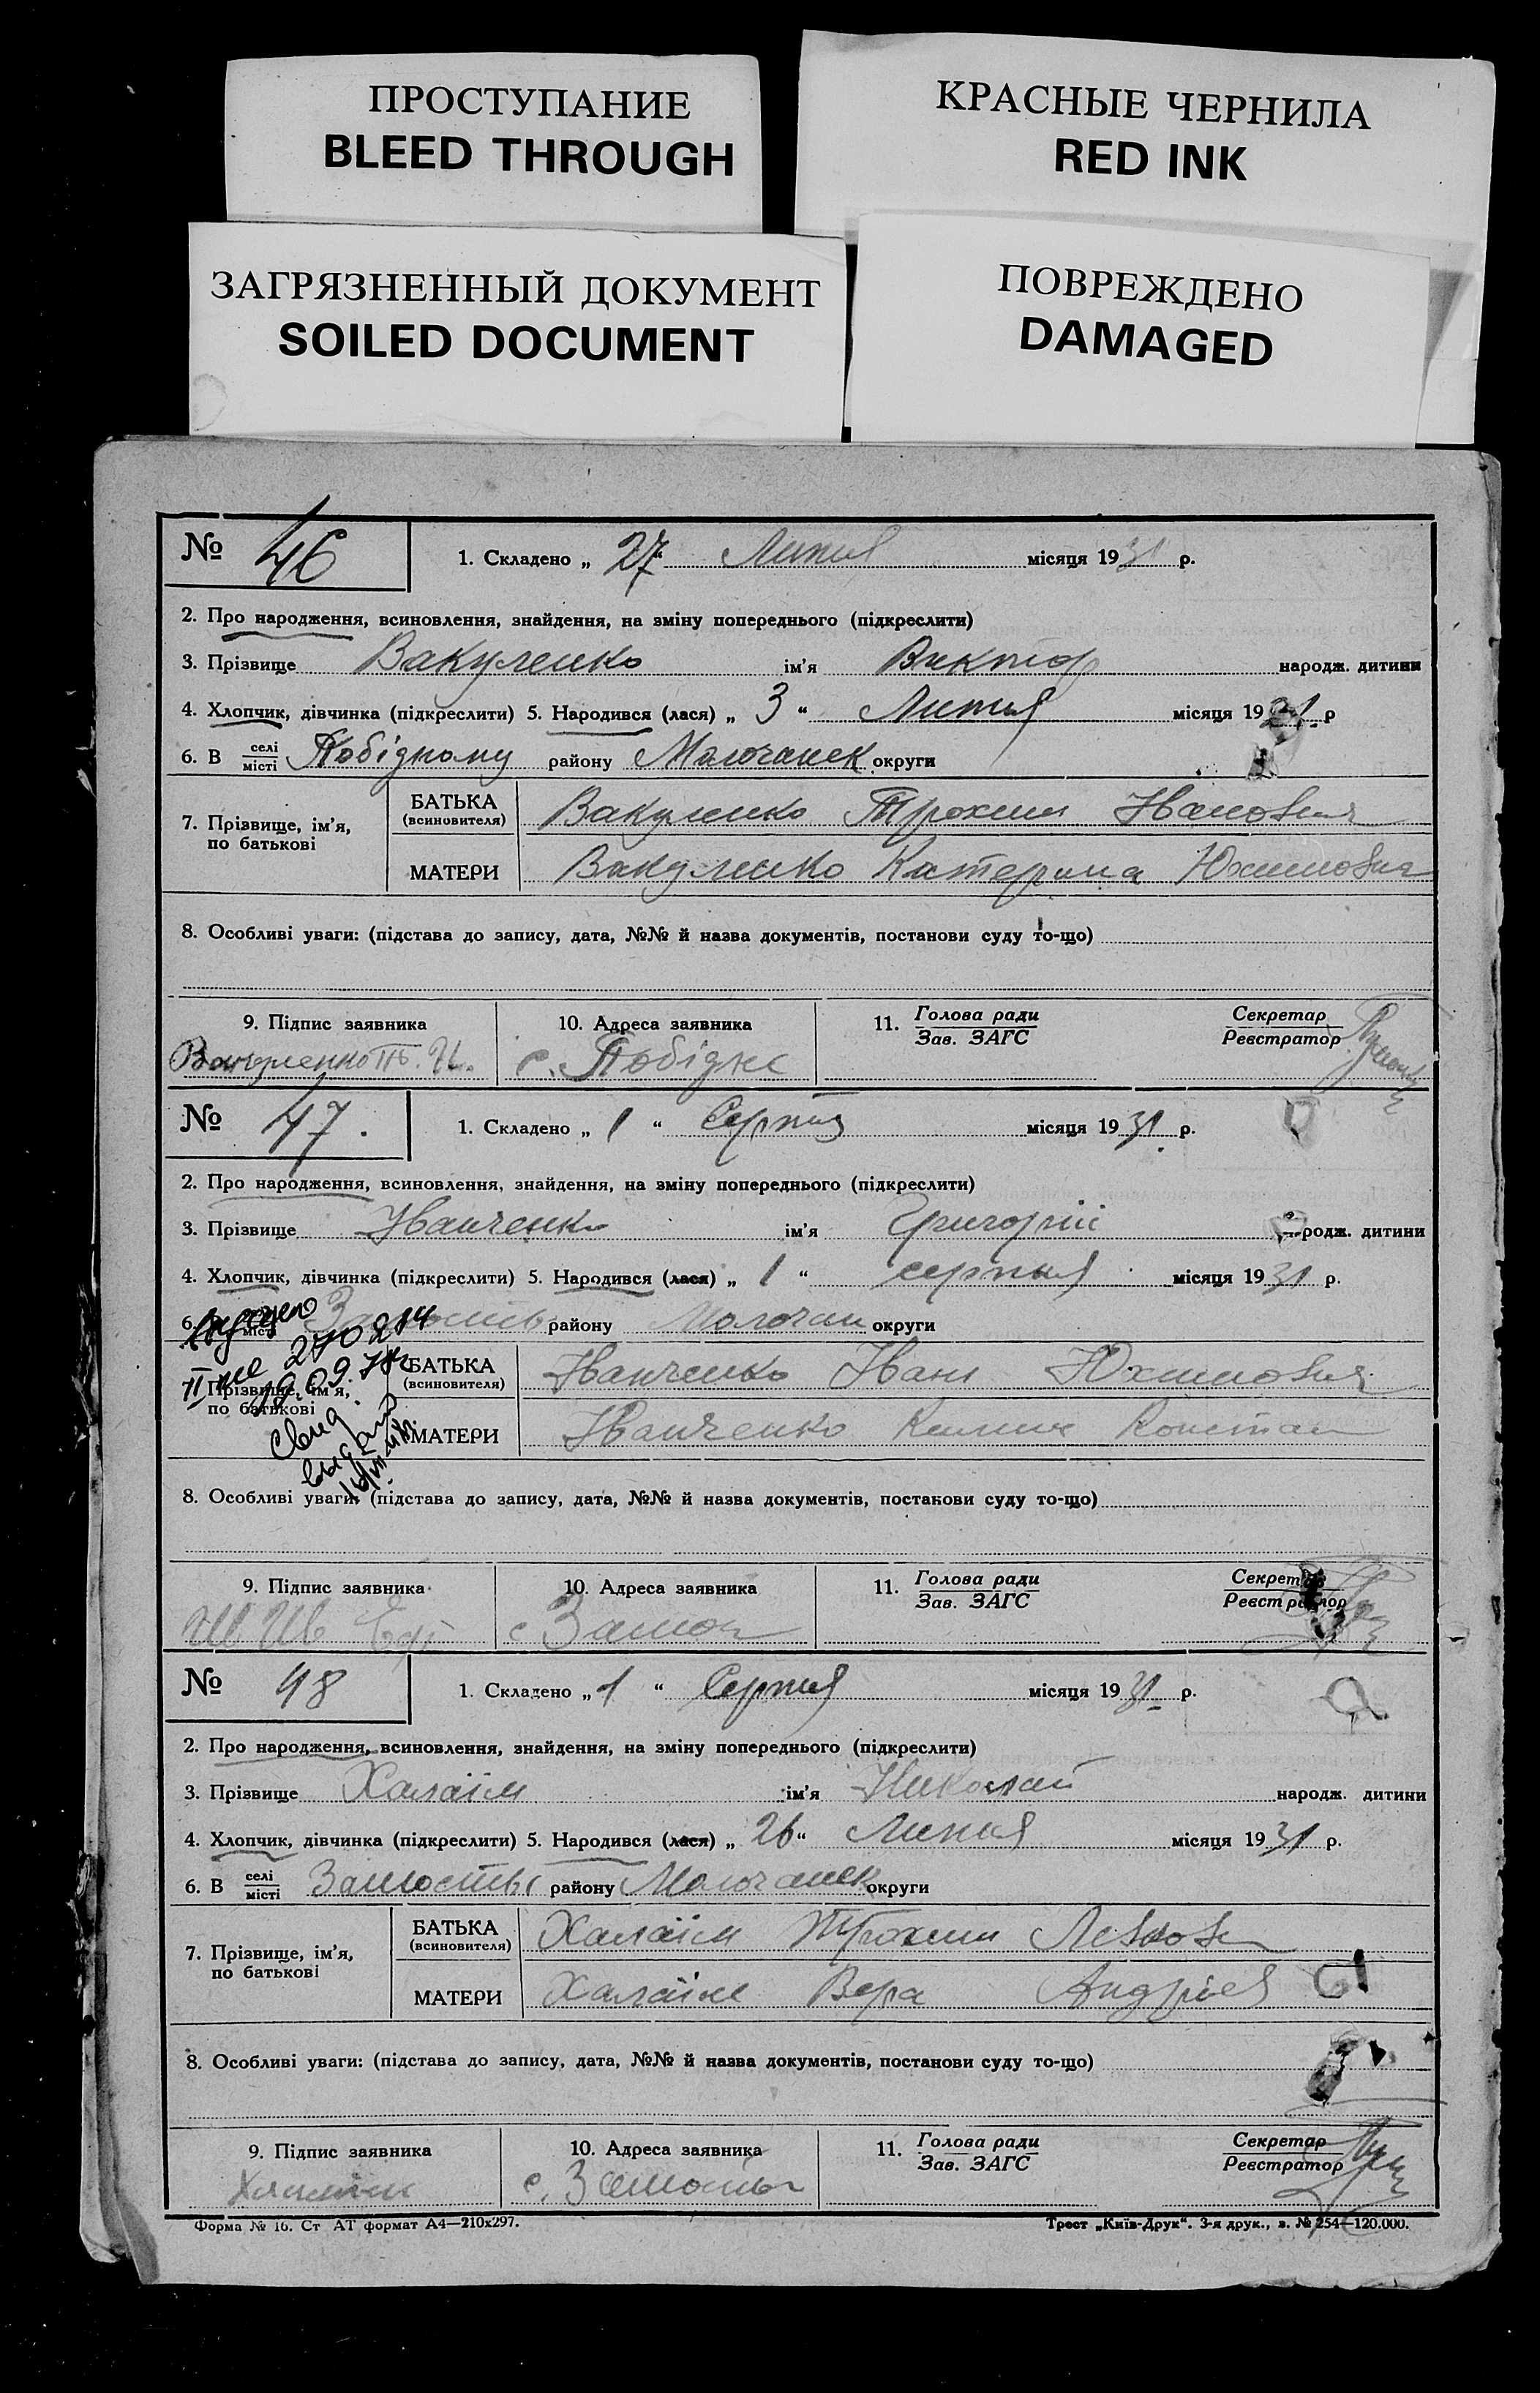 ПРОСТУПАНИЕ
BLEED THROUGH
КРАСНЫЕ ЧЕРНИЛА
RED INK
ЗАГРЯЗНЕННЫЙ ДОКУМЕНТ
SOILED DOCUMENT
ПОВРЕЖДЕНО
DAMAGED
№ 46
1. Складено „ 27 “ Липня місяця 1931 р.
2. Про народження, всиновлення, знайдення, на зміну попереднього (підкреслити)
3. Прізвище Вакуленко ім’я Виктор народж. дитини
4. Хлопчик, дівчинка (підкреслити) 5. Народився (лася) „ 3 “ Липня місяця 1931 р
6. В селі/місті Побідному району Молочанск округи
7. Прізвище, ім’я, по батькові
БАТЬКА (всиновителя) Вакуленко Трохим Іванович
МАТЕРИ Вакуленко Катерина Юхимовна
8. Особливі уваги: (підстава до запису, дата, №№ й назва документів, постанови суду то-що)
9. Підпис заявника
10. Адреса заявника
11. Голова ради
Зав. ЗАГС
Секретар
Реєстратор
Вакуленко с. Побідне
№ 47.
1. Складено „ 1 “ Серпня місяця 1931 р.
2. Про народження, всиновлення, знайдення, на зміну попереднього (підкреслити)
3. Прізвище Иванченко ім’я Григорий народж. дитини
4. Хлопчик, дівчинка (підкреслити) 5. Народився (лася) „ 1 “ серпня місяця 1931 р.
6. району Молочан округи
7. Прізвище, ім’я, по батькові
БАТЬКА (всиновителя) Іванченко Іван Юхимович
МАТЕРИ Іванченко Констан
8. Особливі уваги: (підстава до запису, дата, №№ й назва документів, постанови суду то-що)
9. Підпис заявника
10. Адреса заявника
11. Голова ради
Зав. ЗАГС
Секретар
Реєстратор
с Замост
№ 48
1. Складено „ 1 “ Серпня місяця 1931 р.
2. Про народження, всиновлення, знайдення, на зміну попереднього (підкреслити)
3. Прізвище Халаїм ім’я Николай народж. дитини
4. Хлопчик, дівчинка (підкреслити) 5. Народився (лася) „ 26 “ Липня місяця 1931 р.
6. В селі/місті Замостьї району Молочанск округи
7. Прізвище, ім’я, по батькові
БАТЬКА (всиновителя) Халаїм Трохим
МАТЕРИ Халаїм Вера Андріев
8. Особливі уваги: (підстава до запису, дата, №№ й назва документів, постанови суду то-що)
9. Підпис заявника
10. Адреса заявника
11. Голова ради
Зав. ЗАГС
Секретар
Реєстратор
с. Замостьї
Форма № 16. Ст АТ формат А4—210х297.
Трест „Київ-Друк“. 3-я друк., з. № 254—120.000.